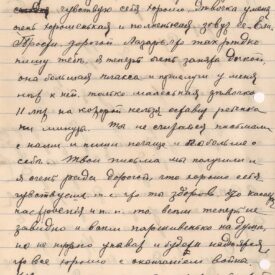 чувствую себя хорошо. Девочка у меня
очень хорошенькая и полненькая зовут её Белла.
Просты дорогой Лазарь, что так редко
пишу тебе, я теперь очень занята дочкой,
она большая плакса и прислуги у меня
нет, только маленькая девчонка
11 лет на которой нельзя оставить ребёнка
ни минуты. Ты не считайся письмами
с нами и пиши почаще и побольше о
себе. Твои письма мы получили и
я очень рада дорогой, что хорошо себя
чувствуешь и что ты здоров. Что касается
настроения и т. п. то, всем теперь не
завидно и всем паршивенько на душе,
но не нужно унывать и будем надеяться,
что всё хорошо с окончанием войны